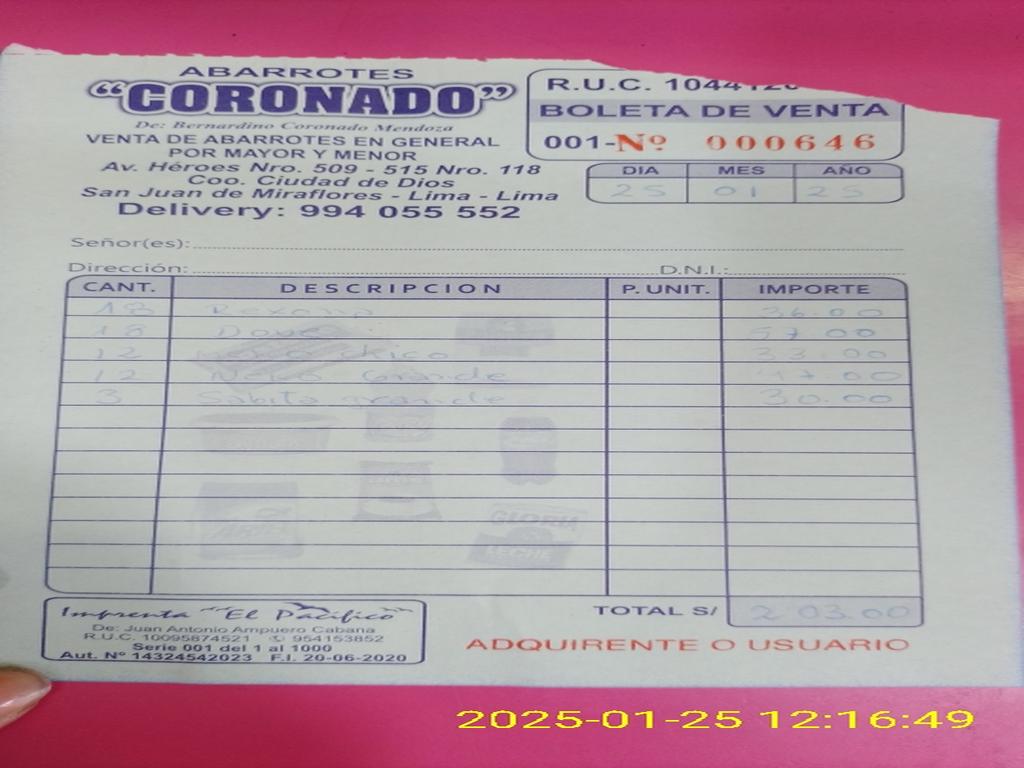 ABARROTES
"CORONADO"
De: Bernardino Coronado Mendoza
VENTA DE ABARROTES EN GENERAL
POR MAYOR Y MENOR
Av. Héroes Nro. 509 - 515 Nro. 118
Coo. Ciudad de Dios
San Juan de Miraflores - Lima - Lima
Delivery: 994 055 552
R.U.C. 1044
BOLETA DE VENTA
001-Nº 000646
DIA MES AÑO
25 01 25
Señor(es):
Dirección: D.N.I.:
CANT. DESCRIPCION P. UNIT. IMPORTE
18 Rexona 36.00
18 Dove 57.00
12 chico 33.00
12 Grande 47.00
3 Sabita grande 30.00
GLORIA
LECHE
TOTAL S/ 203.00
Imprenta "El Pacífico"
De: Juan Antonio Ampuero Cabana
R.U.C. 10095874521 954153852
Serie 001 del 1 al 1000
Aut. Nº 14324542023 F.I. 20-06-2020
ADQUIRENTE O USUARIO
2025-01-25 12:16:49